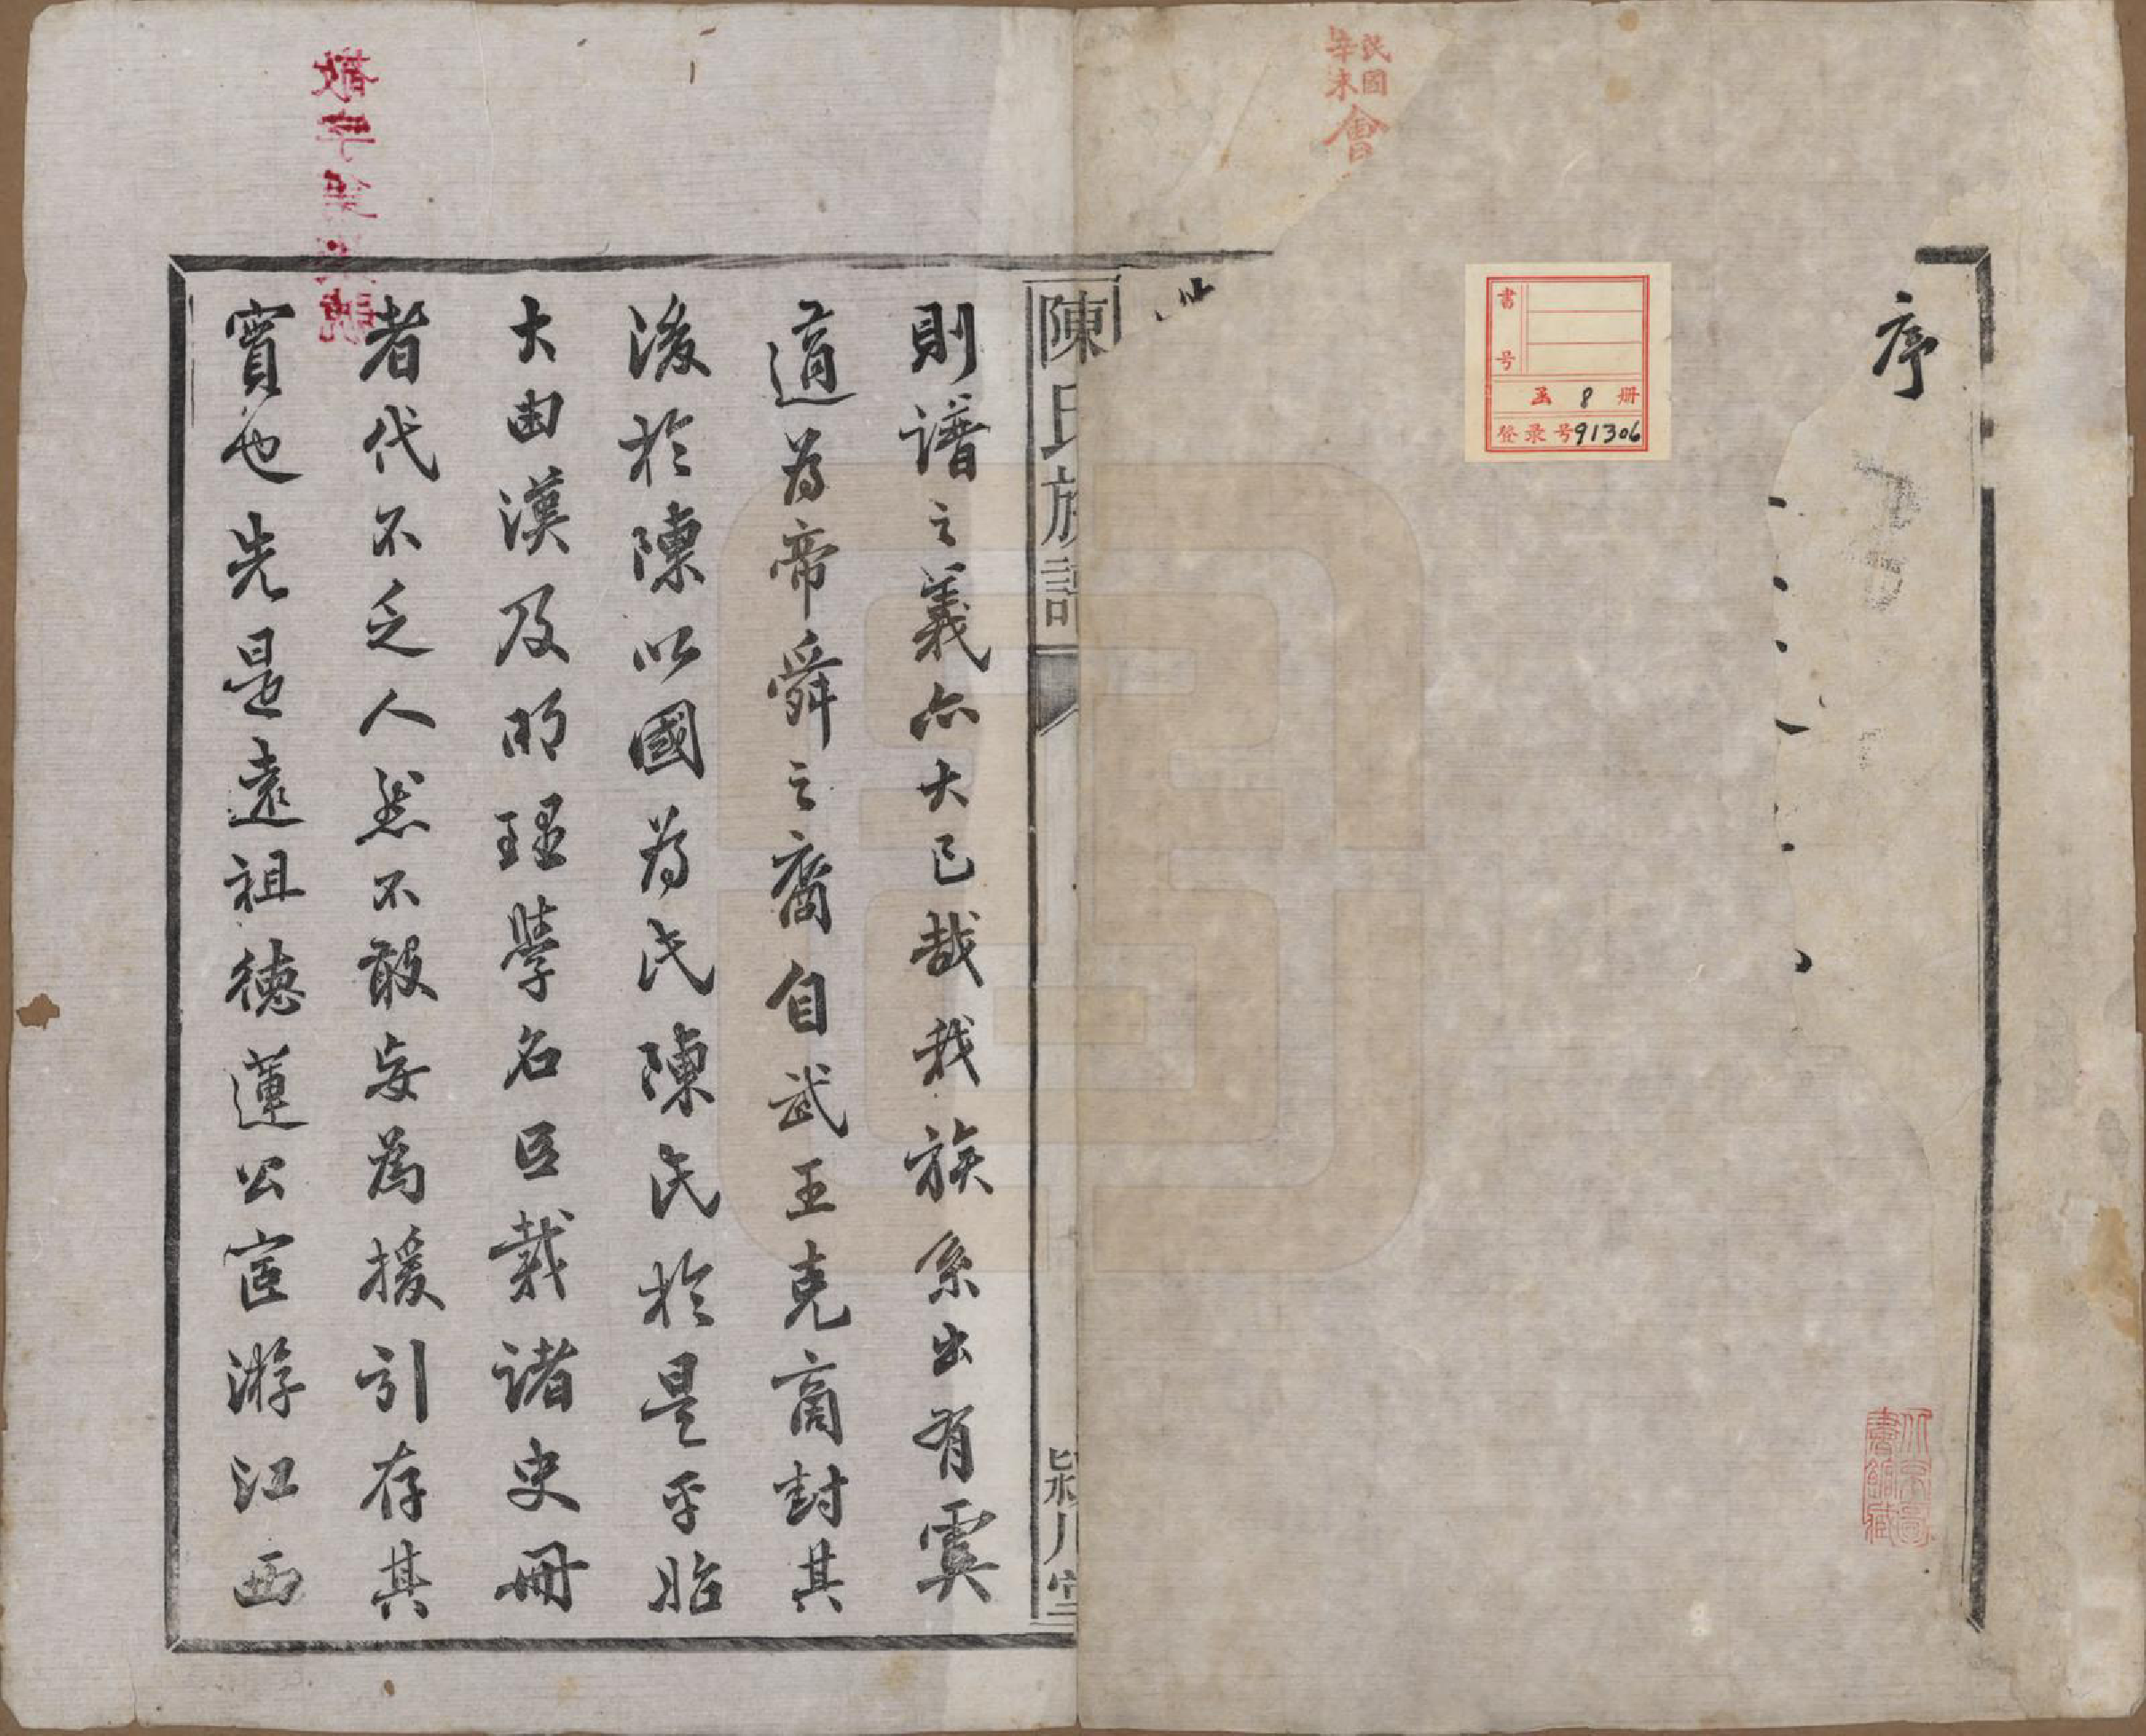 民國
辛未
會
序
書号
函 8 册
登录号 91306
陳氏族譜
潁川堂
則譜之義亦大已哉我族系出有虞
道為帝舜之裔自武王克商封其
後於陳以國為氏陳氏於是乎貽
大由漢及明理學名臣載諸史冊
者代不乏人然不敢妄為援引存其
實也先是遠祖德運公宦游江西